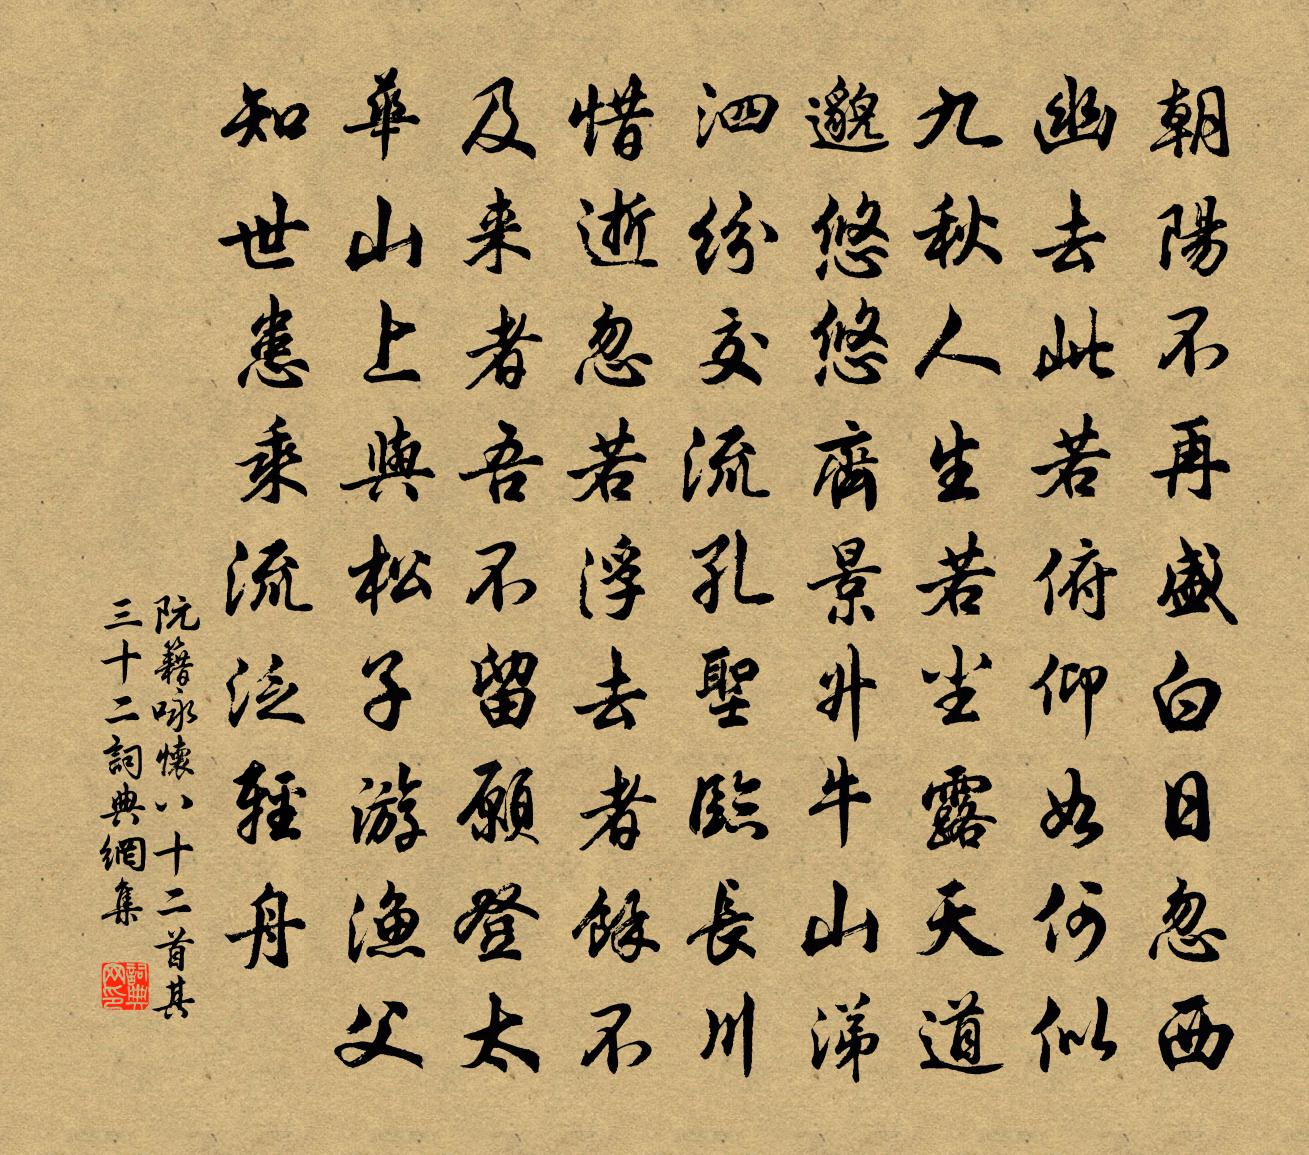 朝陽不再盛白日忽西
幽去此若俯仰如何似
九秋人生若尘露天道
邈悠悠齊景升牛山涕
泗紛交流孔聖臨長川
惜逝忽若浮去者餘不
及来者吾不留願登太
華山上與松子游漁父
知世患乘流泛輕舟
阮籍咏懷八十二首其
三十二詞典網集
詞典
网印